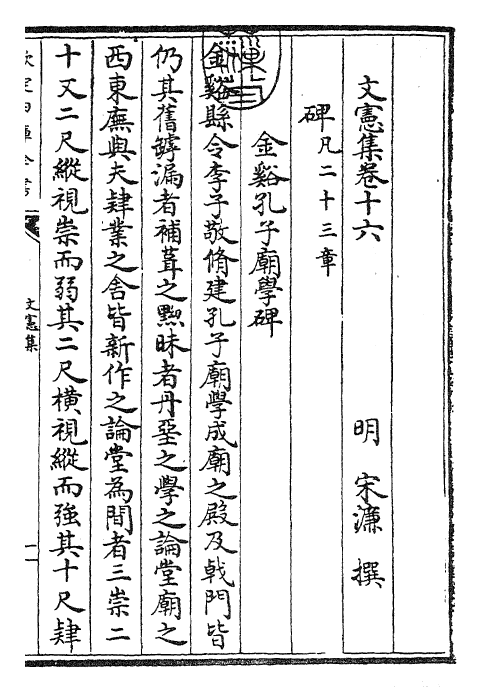 文憲集卷十六
明 宋濂 撰
碑凡二十三章
金谿孔子廟學碑
金谿縣令李子敬脩建孔子廟學成廟之殿及㦸門皆
仍其舊罅漏者補葺之黝昧者丹堊之學之論堂廟之
西東廡與夫肄業之舍皆新作之論堂為間者三崇二
十又二尺縱視崇而弱其二尺橫視縱而強其十尺肄
文憲集
一